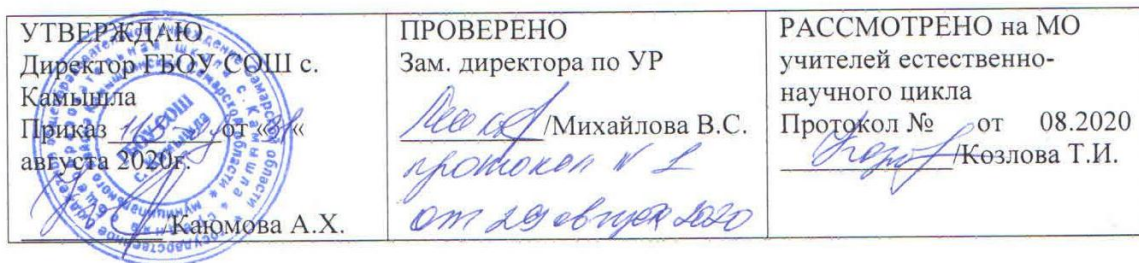 УТВЕРЖДАЮ
Директор ГБОУ СОШ с.
Камышла
Приказ от «31«
августа 2020г.
/Каюмова А.Х.
ПРОВЕРЕНО
Зам. директора по УР
/Михайлова В.С.
протокол № 1
от 29 августа 2020
РАССМОТРЕНО на МО
учителей естественно-
научного цикла
Протокол № от 08.2020
/Козлова Т.И.
ГБОУ СОШ
с. Камышла